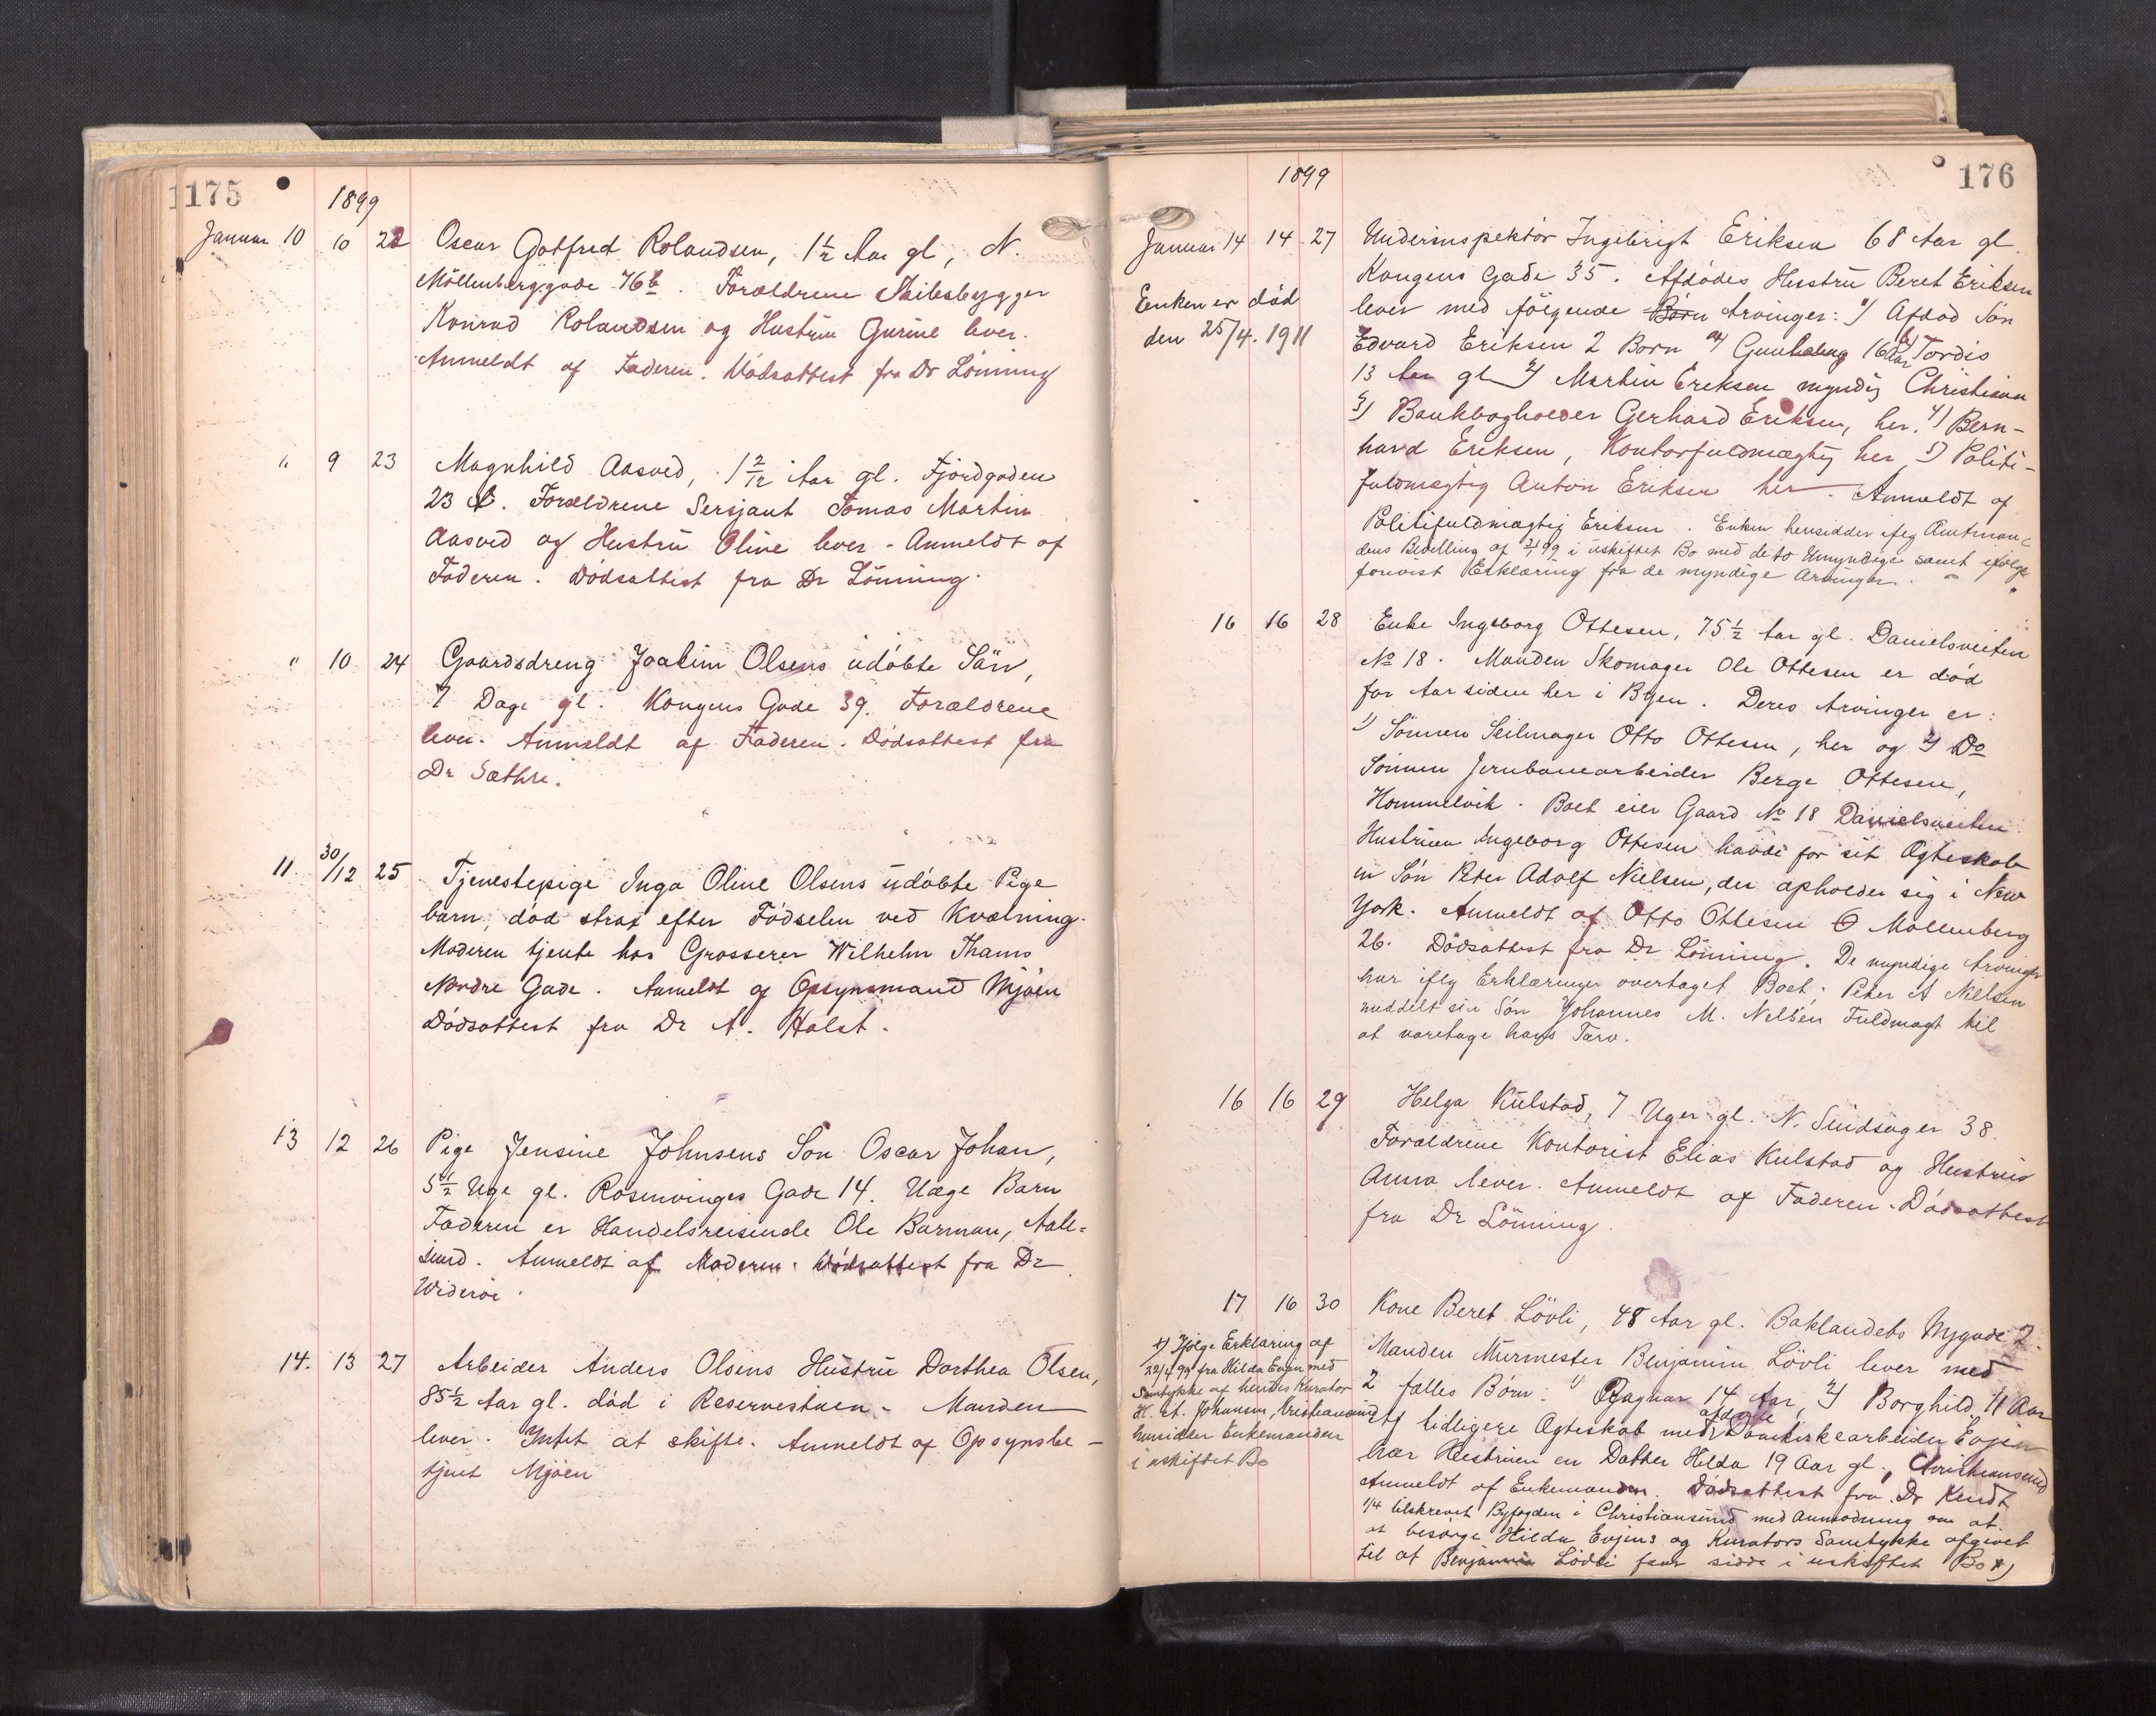 1175
1899
Januar 10 10 22 Oscar Gotfred Rolandsen, 1½ Aar gl, N.
Möllenberggade 76b. Forældrene Skibsbygger
Konrad Rolandsen og Hustru Gurine lever.
Anmeldt af Faderen. Dödsattest fra Dr Lönning
" 9 23 Magnhild Aasved, 1 2/12 Aar gl. Fjordgaden
23 b. Forældrene Sersjant Tomas Martin
Aasved og Hustru Oline lever - Anmeldt af
Faderen. Dödsattest fra Dr Lönning.
" 10 24 Gaardsdreng Joakim Olsens udöbte Sön,
7 Dage gl. Kongens Gade 39. Forældrene
lever. Anmeldt af Faderen. Dödsattest fra
Dr Sæthre.
11. 30/12 25 Tjenestepige Inga Oline Olsens udöbte Pige
barn, död strax efter Födselen ved Kvælning.
Moderen tjente hos Grosserer Wilhelm Thams
Nordre Gade. Anmeldt af Opsynsmand Mjöen
Dödsattest fra Dr A. Holst.
13 12 26 Pige Jensine Johnsens Sön Oscar Johan,
5½ Uge gl. Rosenvinges Gade 14. Uægte Barn
Faderen er Handelsreisende Ole Barman, Aale-
sund. Anmeldt af Moderen. Dödsattest fra Dr
Wideröe.
14. 13 27 Arbeider Anders Olsens Hustru Dorthea Olsen,
85½ Aar gl. död i Reservestuen - Manden
lever. Intet at skifte. Anmeldt af Opsynsbe-
tjent Mjöen
1899
176
Januar 14 14 27 Underinspektör Ingebrigt Eriksen 68 Aar gl.
Kongens Gade 35. Afdödes Hustru Beret Eriksen
lever med fölgende Börn Arvinger: 1) Afdöd Sön
Edvard Eriksen 2 Börn a) Gunhaug 16 Aar b) Tordis
13 Aar gl 2) Martin Eriksen myndig Christiania
3) Bankbogholder Gerhard Eriksen, her. 4) Bern-
hard Eriksen, Kontorfuldmægtig her 5) Politi-
fuldmægtig Anton Eriksen her. Anmeldt af
Politifuldmægtig Eriksen. Enken hensidder iflg Amtman-
dens Bevilling af 2/1 99 i uskiftet Bo med de to Umyndige samt ifölge
forevist Erklæring fra de myndige Arvinger.
Enken er död
den 25/4. 1911
16 16 28 Enke Ingeborg Ottesen, 75½ Aar gl. Danielsveiten
No 18. Manden Skomager Ole Ottesen er död
for Aar siden her i Byen. Deres Arvinger er:
1) Sönnen Seilmager Otto Ottesen, her og 2) Do
Sönnen Jernbanearbeider Berge Ottesen,
Hommelvik. Boet eier Gaard No 18 Danielsveiten
Hustruen Ingeborg Ottesen havde för sit Ægteskab
en Sön Peter Adolf Nielsen, der opholder sig i New
York. Anmeldt af Otto Ottesen Ö Möllenberg
26. Dödsattest fra Dr Lönning. De myndige Arvinger
har iflg Erklæringer overtaget Boet. Peter A Nielsen
meddelt sin Sön Johannes M. Nelsen Fuldmagt til
at varetage hans Tarv.
16 16 29 Helga Kulstad, 7 Uger gl. N. Sindsager 38.
Forældrene Kontorist Elias Kulstad og Hustru
Anna lever. Anmeldt af Faderen. Dödsattest
fra Dr Lönning.
17 16 30 Kone Beret Lövli, 48 Aar gl. Baklandets Nygade 2.
Manden Murmester Benjamin Lövli lever med
2 fælles Börn: 1) Ragnar 14 Aar, 2) Borghild 11 Aar
Af tidligere Ægteskab med afdöde Domkirkearbeider Evjen
har Hustruen en Datter Hilda 19 Aar gl., Christiansund
Anmeldt af Enkemanden. Dödsattest fra Dr Kindt
1/4 tilskrevet Byfogden i Christiansund med Anmodning om at
at besörge Hilda Evjens og Kurators Samtykke afgivet
til at Benjamin Lövli faar sidde i uskiftet Bo x)
x) Ifölge Erklæring af
22/4 99 fra Hilda Evjen med
Samtykke af hendes Kurator
H. A. Johansen, Kristiansund
hensidder Enkemanden
i uskiftet Bo